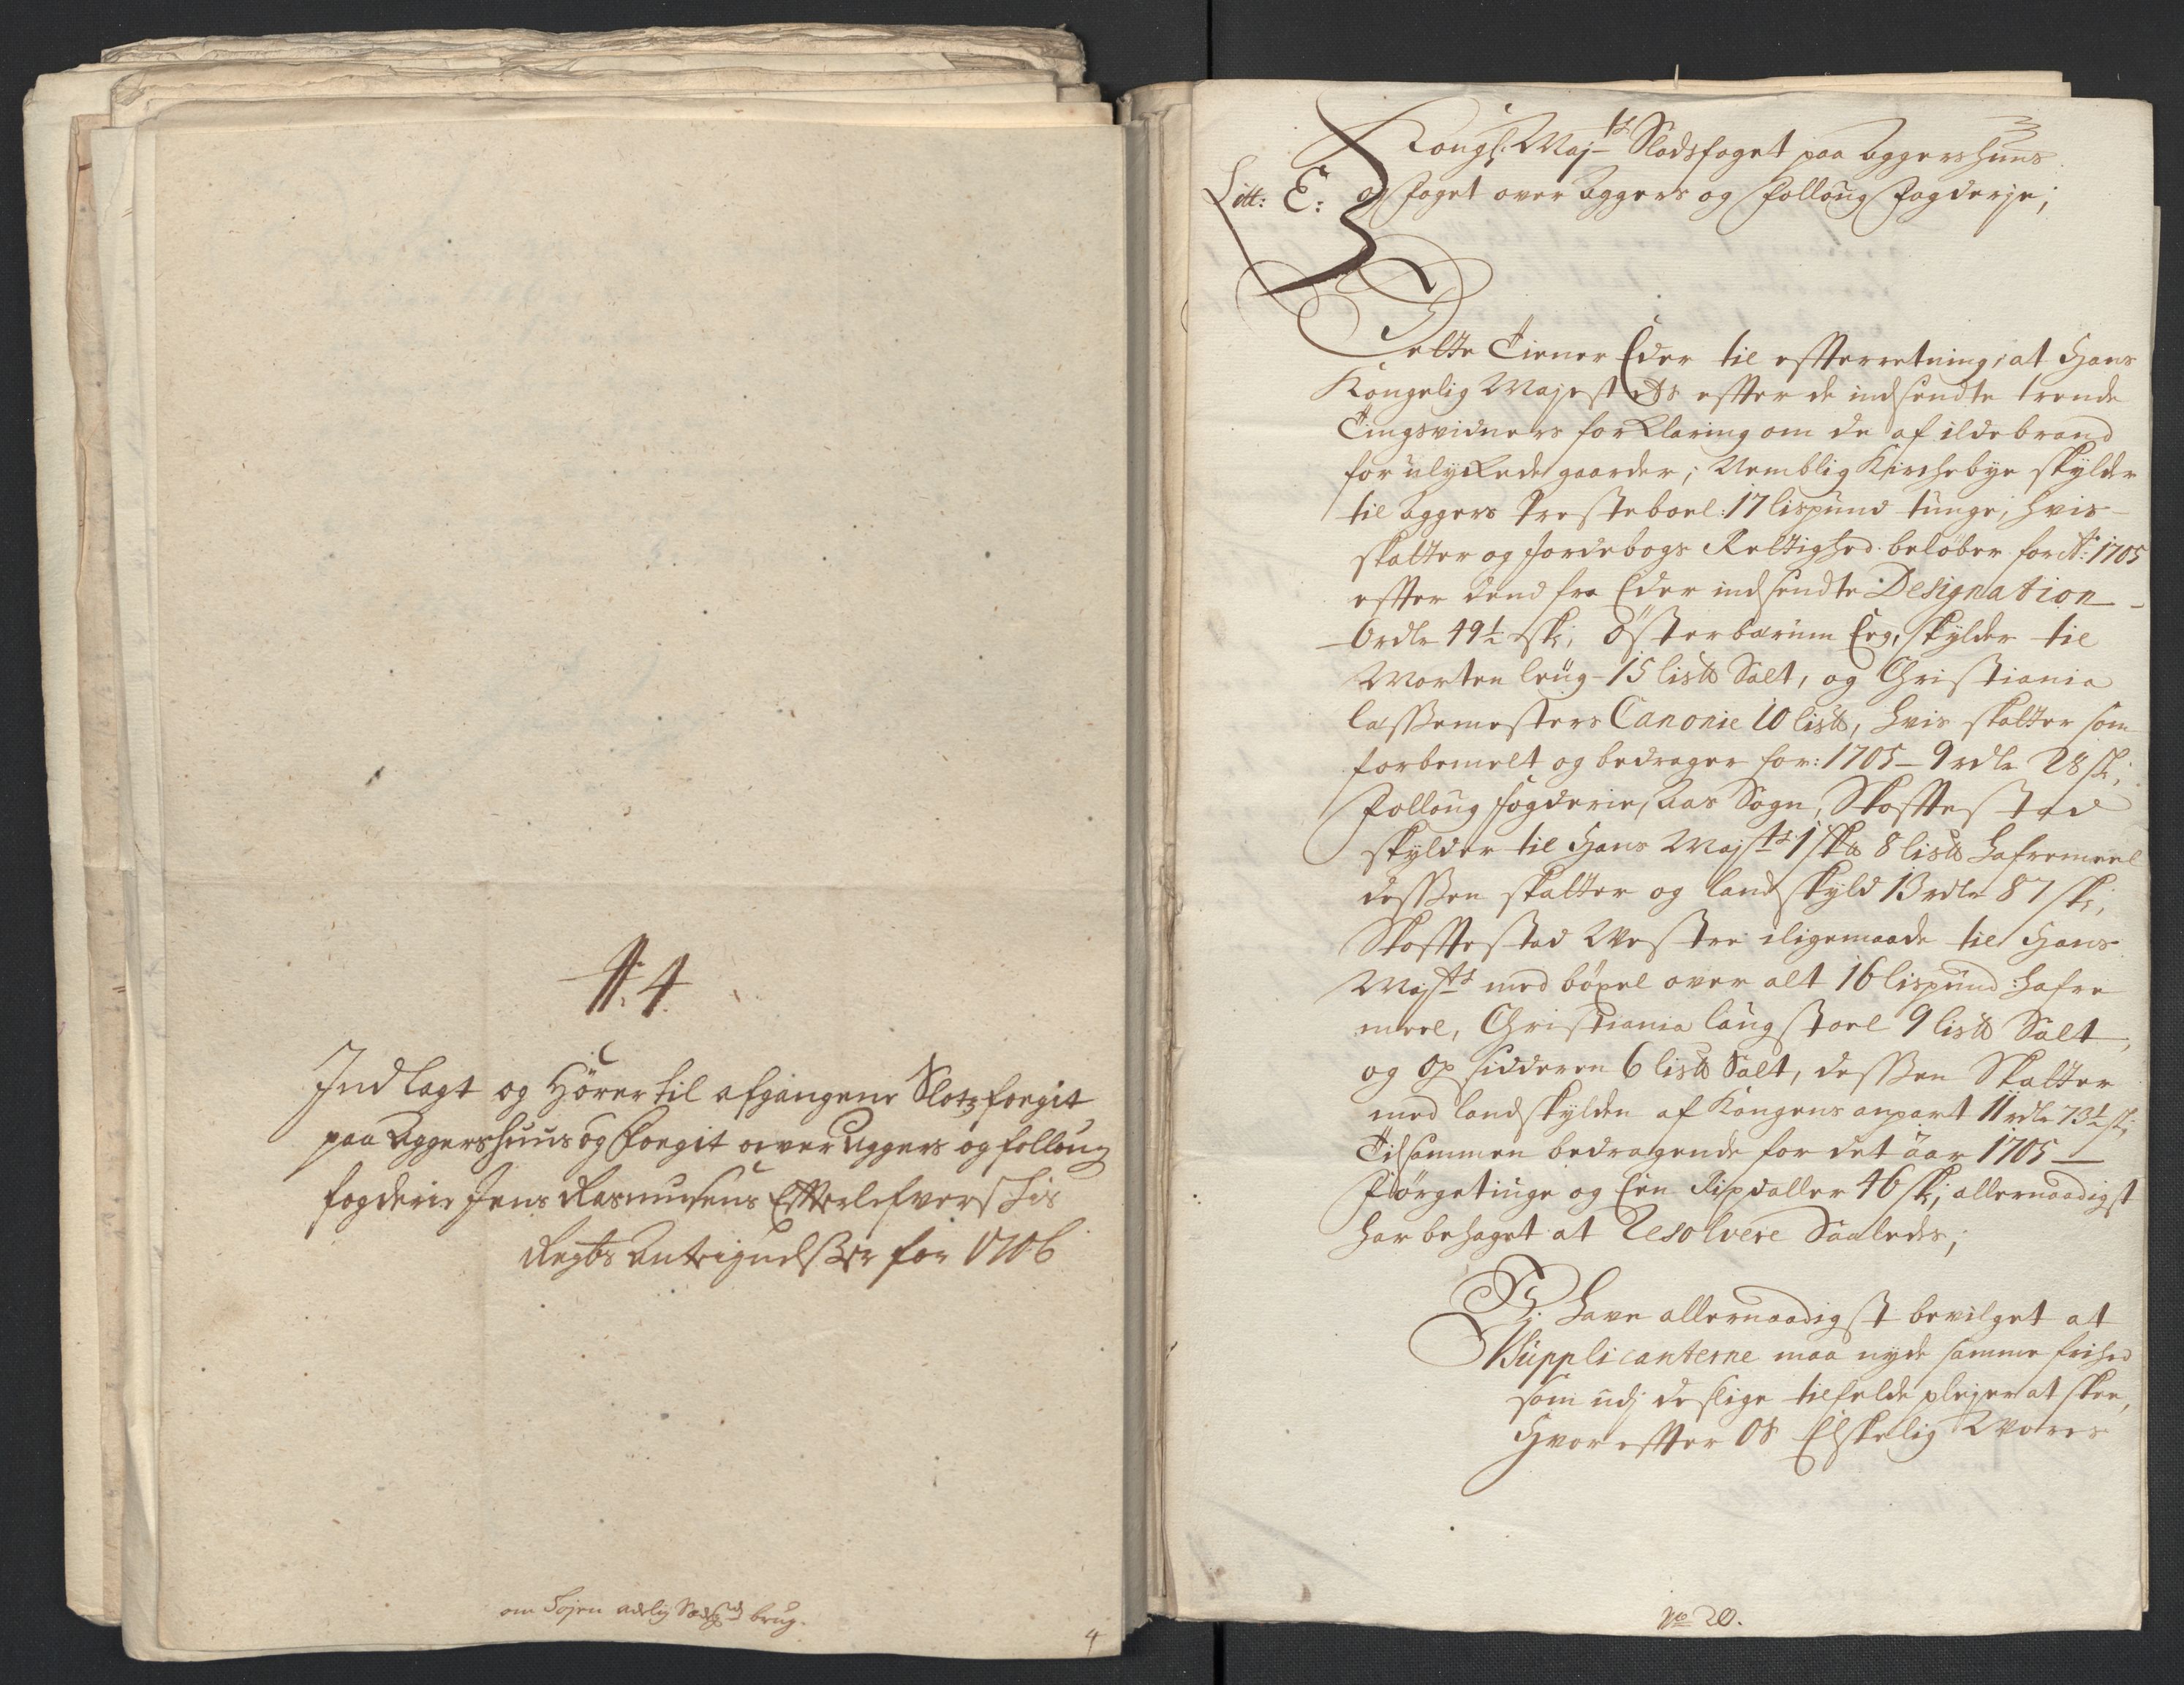 N. 4
Indlagt og Hører til afgangene Slotzfoegit
paa Aggershuus og foegit over Aggers og folloug
fogderie Jens Rasmusens Efterlefverskis
Regbs Antegnelsser for 1706
om Høyen adelig Sædegd brug.
4
Kongl: Majts Slodsfoget paa Aggershuus
Litt: E: og foget over Aggers og Folloug fogderje;
Dette Tiener Eder til efterretning, at Hans
Kongelig Majestets efter de indsendte trende
Tingsvidners forklaring om de af ildebrand
forulyckede gaarder; Nemblig Kirchebye skylder
til Aggers Presteboel: 17 lispund tunge, hvis
skatter og Jordebogs Rettighed beløber for Ao: 1705
efter dend fra Eder indsendte Designation
6 rdlr 49½ sk; Østerbærum Eeg, skylder til
Morten leug 15 lis℔ Salt, og Christiania
læssemesters Canonie 10 lis℔, hvis skatter som
forbemelt og bedrager for: 1705 – 9 rdlr 28 sk;
Folloug fogderie, Aas Sogn, Skoftestad
skylder til Hans Majts 1 sk℔ 8 lis℔ hafremeel
dessen skatter og landskyld 13 rdlr 87 sk;
Skoftestad Westre iligemaade til Hans
Majts med bøxel over alt 16 lispund hafre
meel, Christiania laugstoel 9 lis℔ Salt,
og Opsidderen 6 lis℔ Salt, dessen Skatter
med landskylden af Kongens anpart 11 rdlr 73½ sk;
Tilsammen bedragende for det aar 1705
Førgetiuge og Een Rixdaller 46 sk; allernaadigst
har behaget at Resolvere Saaledes;
Vi have allernaadigst bevilget at
Supplicanterne maa nyde samme frihed
som udj deslige tilfelde plejer at skee,
Hvorefter Os Elskelig Wores
No 20.